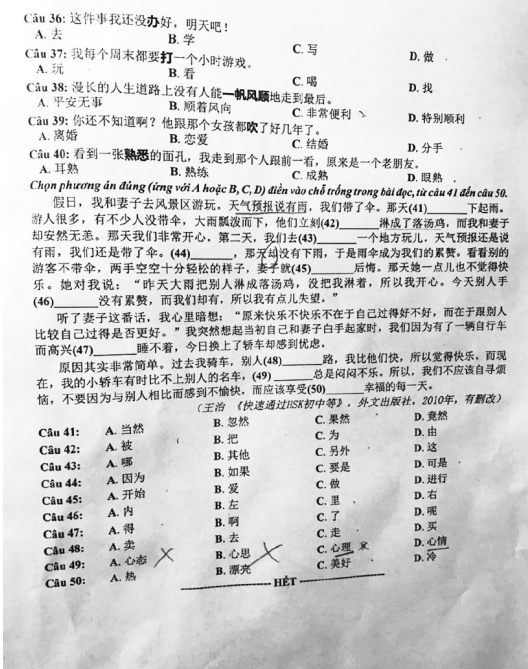 Câu 36: 这件事我还没办好，明天吧！
A. 去 B. 学 C. 写 D. 做
Câu 37: 我每个周末都要打一个小时游戏。
A. 玩 B. 看 C. 喝 D. 找
Câu 38: 漫长的人生道路上没有人能一帆风顺地走到最后。
A. 平安无事 B. 顺着风向 C. 非常便利 D. 特别顺利
Câu 39: 你还不知道啊？他跟那个女孩都吹了好几年了。
A. 离婚 B. 恋爱 C. 结婚 D. 分手
Câu 40: 看到一张熟悉的面孔，我走到那个人跟前一看，原来是一个老朋友。
A. 耳熟 B. 熟练 C. 成熟 D. 眼熟
Chọn phương án đúng (ứng với A hoặc B, C, D) điền vào chỗ trống trong bài đọc, từ câu 41 đến câu 50.
假日，我和妻子去风景区游玩。天气预报说有雨，我们带了伞。那天(41)______下起雨。
游人很多，有不少人没带伞，大雨瓢泼而下，他们立刻(42)______淋成了落汤鸡，而我和妻子
却安然无恙。那天我们非常开心。第二天，我们去(43)______一个地方玩儿，天气预报还是说
有雨，我们还是带了伞。(44)______，那天却没有下雨，于是雨伞成为我们的累赘。看看别的
游客不带伞，两手空空十分轻松的样子，妻子就(45)______后悔。那天她一点儿也不觉得快
乐。她对我说：“昨天大雨把别人淋成落汤鸡，没把我淋着，所以我开心。今天别人手
(46)______没有累赘，而我们却有，所以我有点儿失望。”
听了妻子这番话，我心里暗想：“原来快乐不快乐不在于自己过得好不好，而在于跟别人
比较自己过得是否更好。”我突然想起当初自己和妻子白手起家时，我们因为有了一辆自行车
而高兴(47)______睡不着，今日换上了轿车却感到忧虑。
原因其实非常简单。过去我骑车，别人(48)______路，我比他们快，所以觉得快乐。而现
在，我的小轿车有时比不上别人的名车，(49)______总是闷闷不乐。所以，我们不应该自寻烦
恼，不要因为与别人相比而感到不愉快，而应该享受(50)______幸福的每一天。
（王治 《快速通过HSK初中等》，外文出版社，2010年，有删改）
Câu 41: A. 当然 B. 忽然 C. 果然 D. 竟然
Câu 42: A. 被 B. 把 C. 为 D. 由
Câu 43: A. 哪 B. 其他 C. 另外 D. 这
Câu 44: A. 因为 B. 如果 C. 要是 D. 可是
Câu 45: A. 开始 B. 爱 C. 做 D. 进行
Câu 46: A. 内 B. 左 C. 里 D. 右
Câu 47: A. 得 B. 啊 C. 了 D. 呢
Câu 48: A. 卖 B. 去 C. 走 D. 买
Câu 49: A. 心态 B. 心思 C. 心理 D. 心情
Câu 50: A. 热 B. 漂亮 C. 美好 D. 冷
HẾT